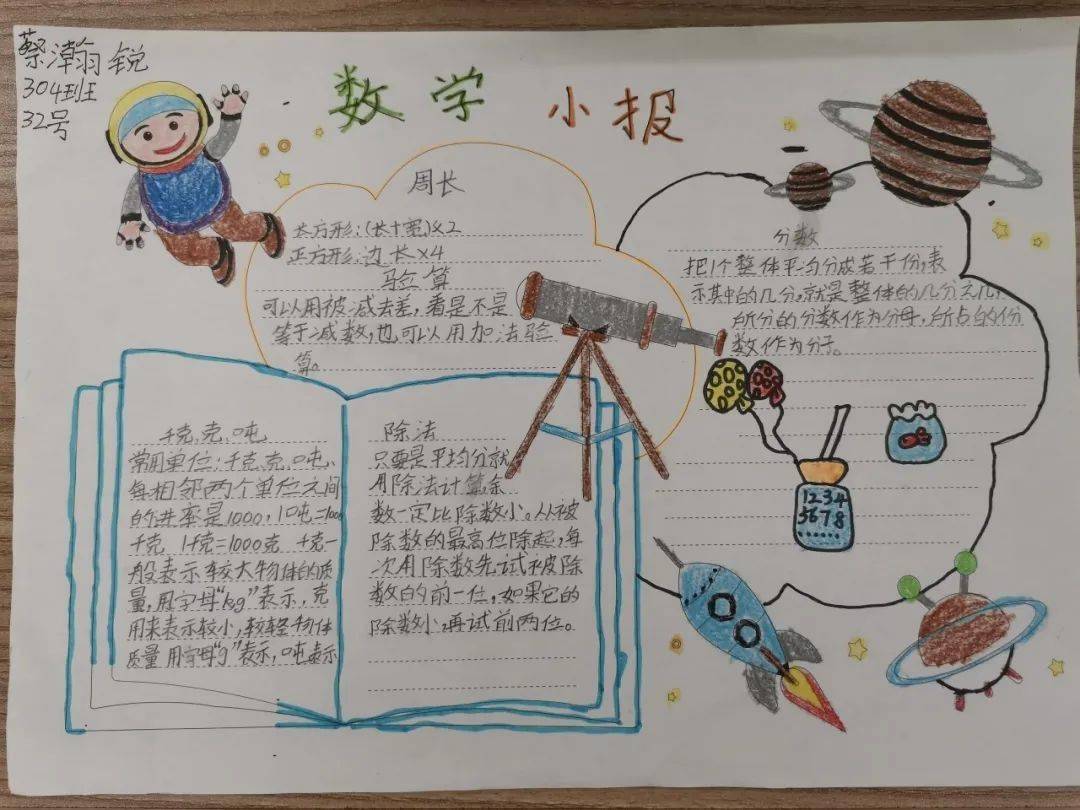 蔡瀚锐
304班
32号
数学 小报
周长
长方形:(长+宽)×2
正方形:边长×4
验算
可以用被减去差,看是不是
等于减数,也可以用加法验
算。
分数
把1个整体平均分成若干份,表
示其中的几分,就是整体的几分之几,
所分的分数作为分母,所占的份
数作为分子。
千克、克、吨
常用单位:千克、克、吨、
每相邻两个单位之间
的进率是1000,1吨=1000
千克 1千克=1000克 千克一
般表示较大物体的质
量,用字母“kg”表示,克
用来表示较小,较轻物体
质量 用字母“g”表示,吨表示
除法
只要是平均分就
用除法计算余
数一定比除数小。从被
除数的最高位除起,每
次用除数先试被除
数的前一位,如果它的
除数小,再试前两位。
1234
5678